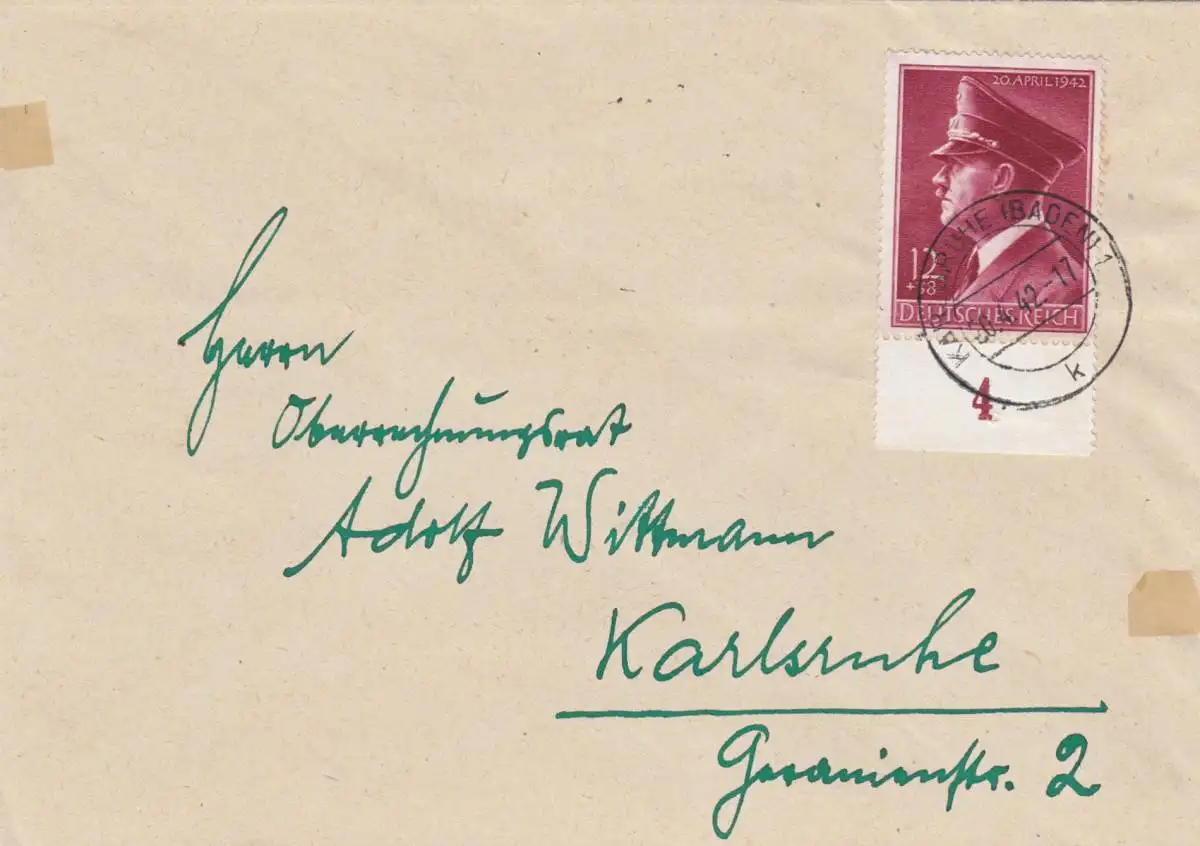 20. APRIL 1942
12
+38
DEUTSCHES REICH
KARLSRUHE (BADEN) 1
30.4.42.-17
k
4
Herrn
Oberrechnungsrat
Adolf Wittmann
Karlsruhe
Geranienstr. 2